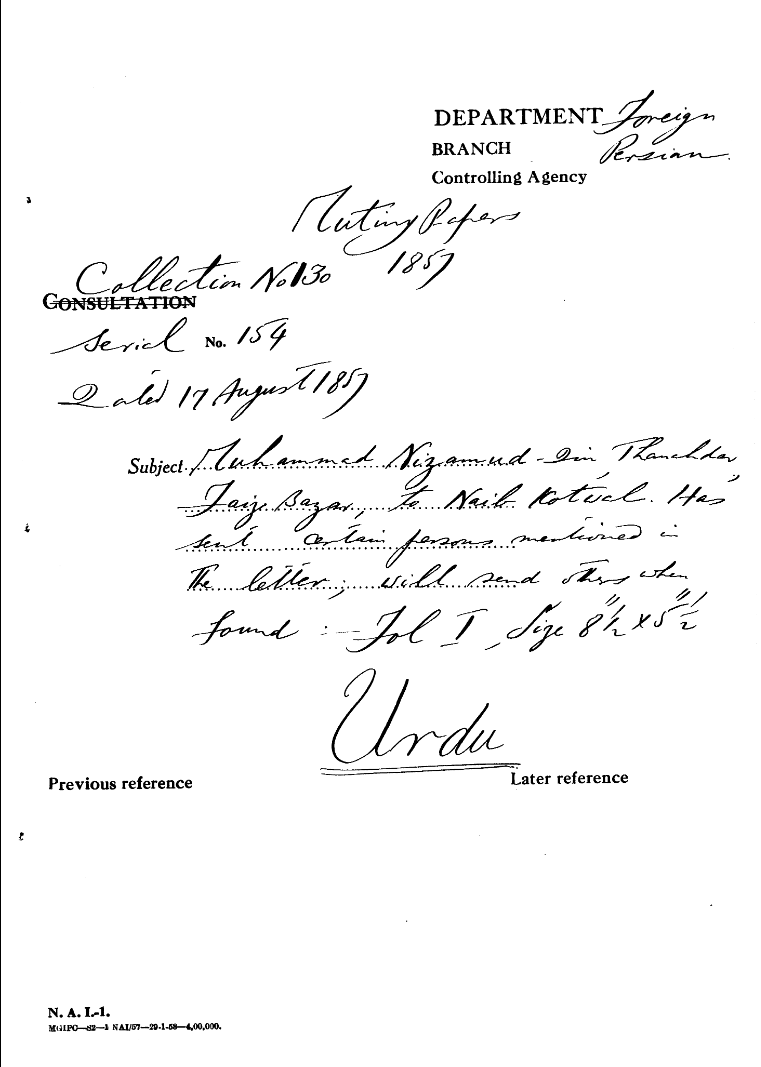 DEPARTMENT Foreign
BRANCH Persian.
Controlling Agency
Mutiny Papers
1857
Collection No 130
CONSULTATION
Serial No. 154
Dated 17 August 1857
Subject. Muhammad Nizamud-Din, Thanahdar,
Faize Bazar, to Naib Kotwal. Has
sent certain persons mentioned in
the letter; will send others when
found :— Fol I, Size 8½" x 5½"
Urdu
Previous reference Later reference
N. A. I.-1.
MGIPC—S2—1 NAI/57—29-1-58—4,00,000.